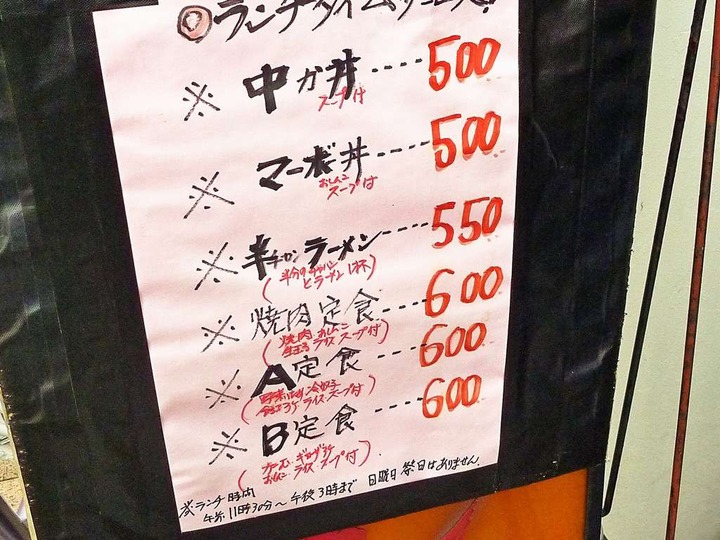 ◎ランチタイムサービス!
※ 中か丼----500
スープ付
※ マーボ丼----500
おしんこ
スープ付
※ 半チャンラーメン----550
(半分のチャーハン
とラーメン1杯)
※ 焼肉定食----600
(焼肉、おしんこ
生玉子 ライス スープ付)
※ A定食----600
ライス、スープ付)
※ B定食----600
おしんこ、ライス、スープ付)
ランチ時間
午前11時30分～午後3時まで 日曜日 祭日はありません。